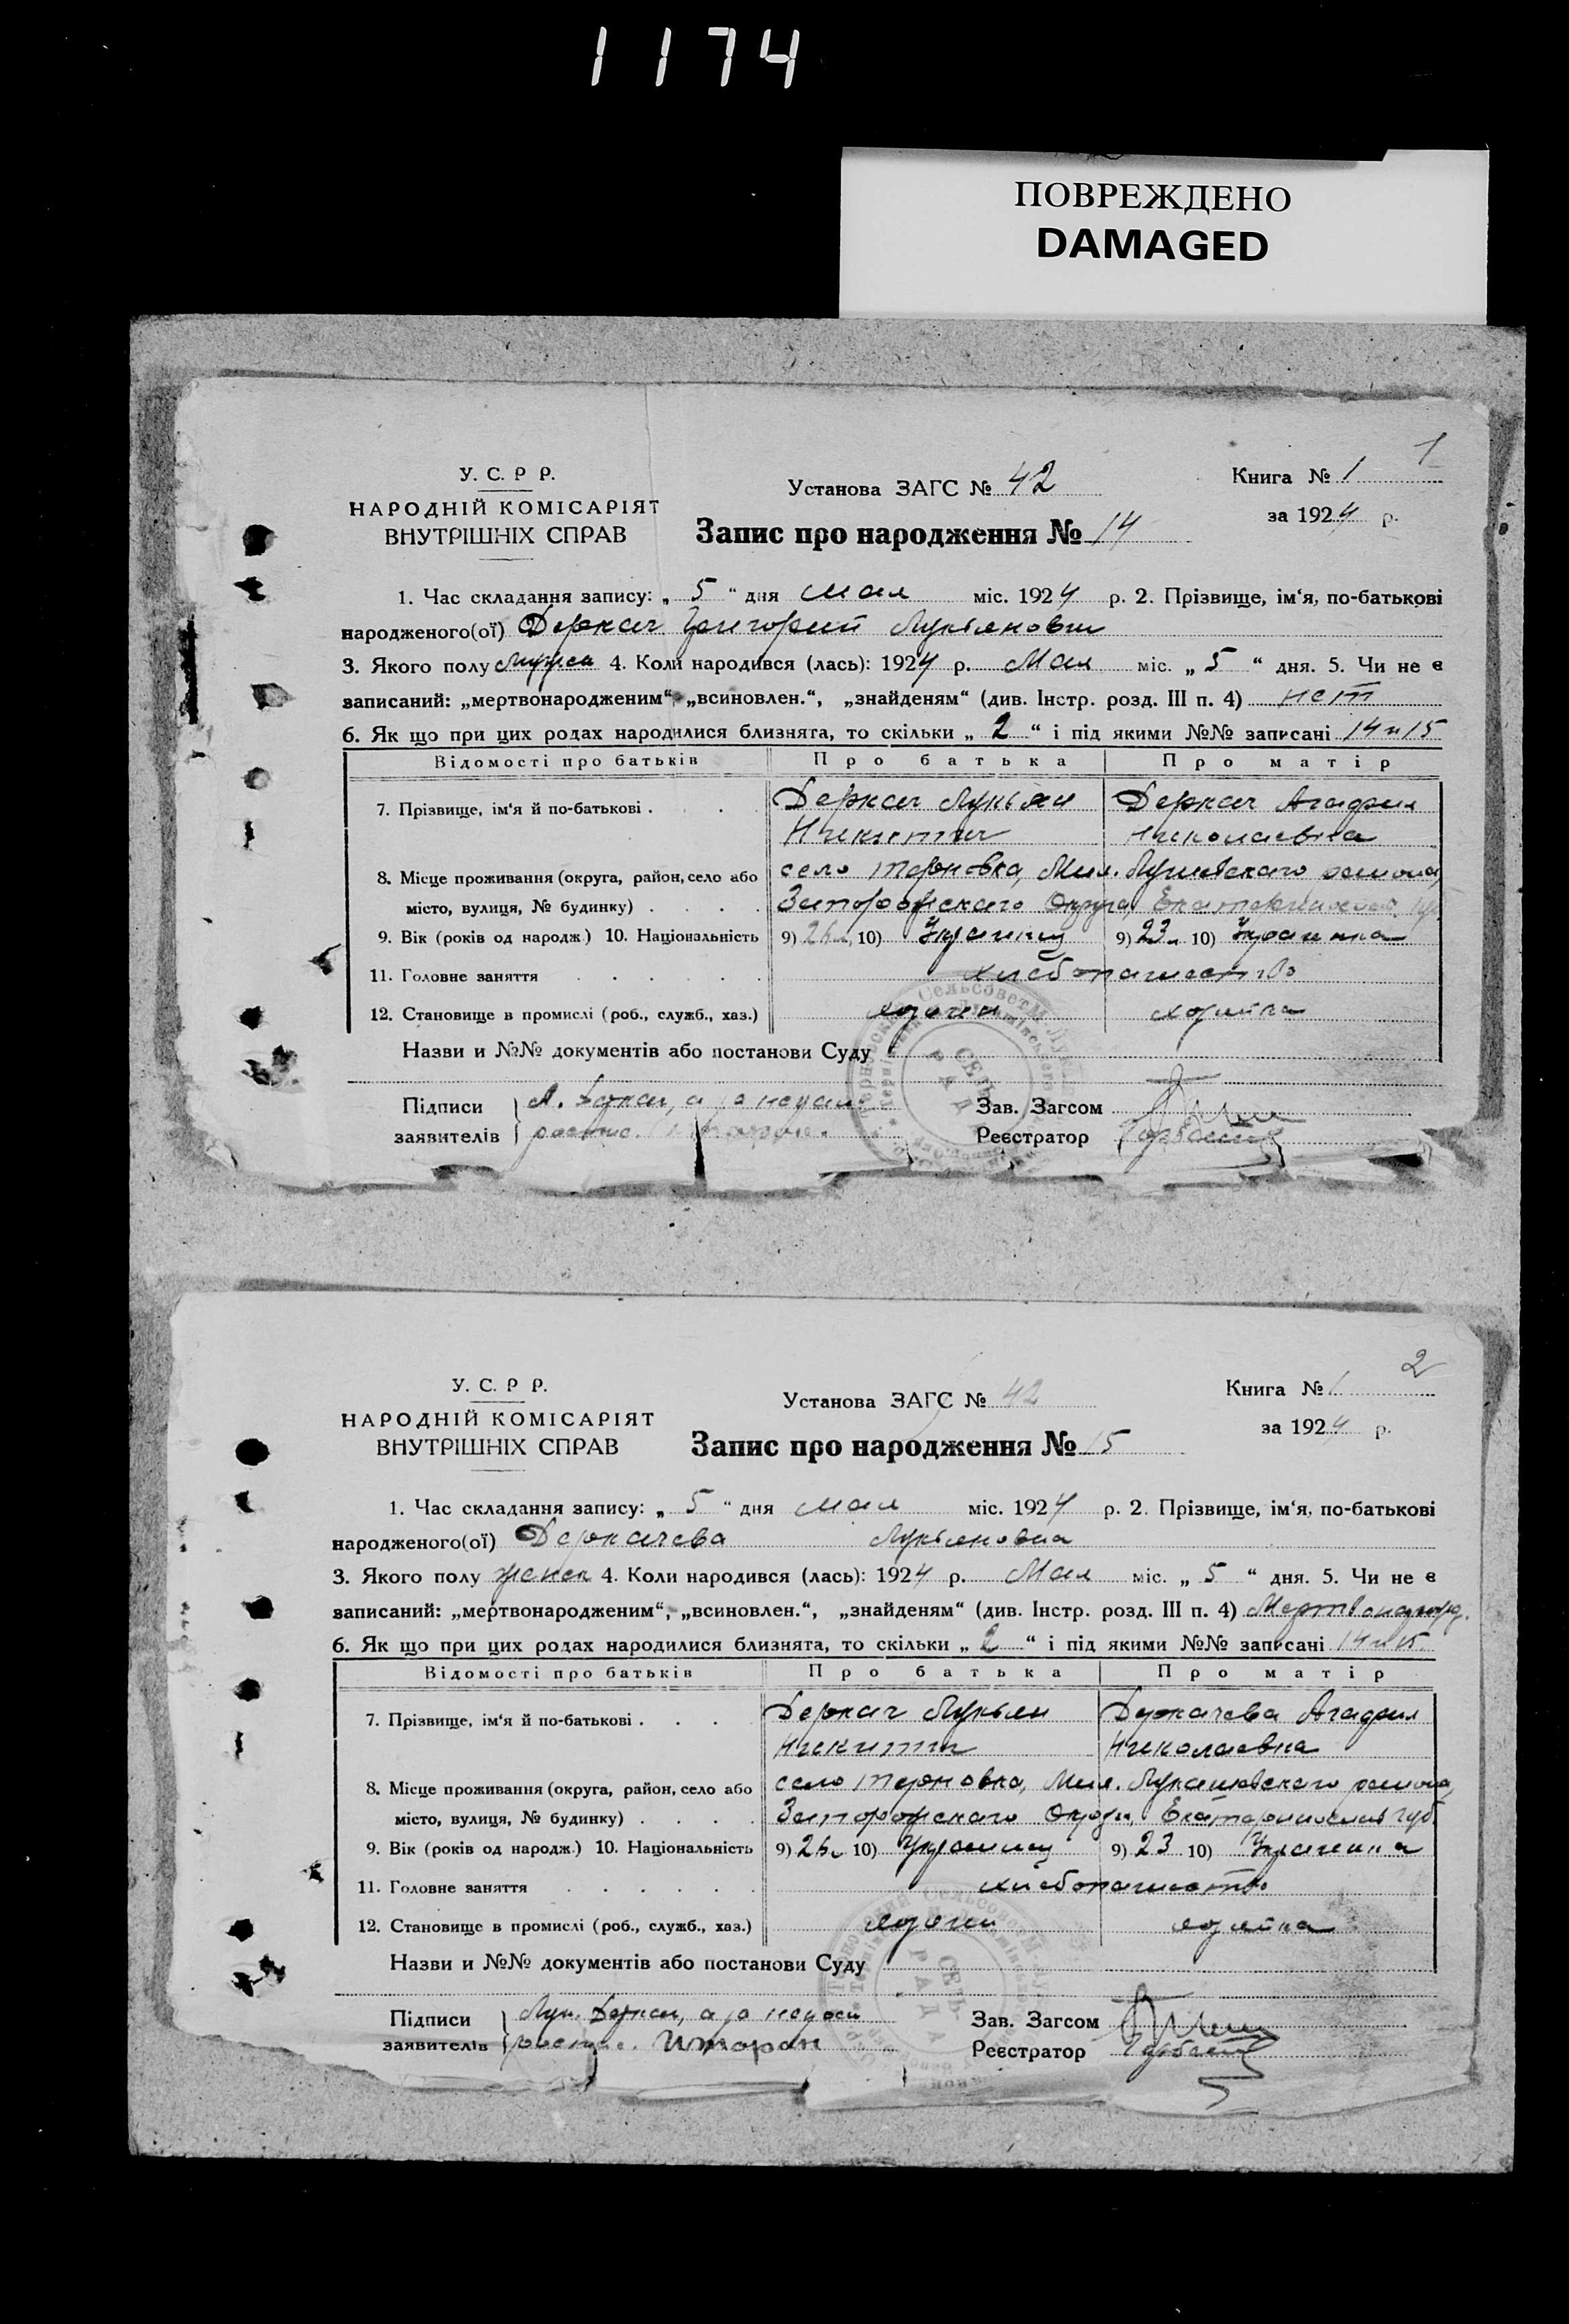 1174
ПОВРЕЖДЕНО
DAMAGED
1
У. С. Р Р.
НАРОДНІЙ КОМІСАРІЯТ
ВНУТРІШНІХ СПРАВ
Установа ЗАГС № 42
Книга № 1
за 1924 р.
Запис про народження № 14
1. Час складання запису: „ 5 “ дня мая міс. 1924 р. 2. Прізвище, ім‘я, по-батькові
народженого(ої) Деркач Григорий Лукьянович
3. Якого полу мужск 4. Коли народився (лась): 1924 р. Мая міс. „ 5 “ дня. 5. Чи не є
записаний: „мертвонародженим“, „всиновлен.“, „знайденям“ (див. Інстр. розд. III п. 4) нет
6. Як що при цих родах народилися близнята, то скільки „ 2 “ і під якими №№ записані 14 и 15
Відомості про батьків Про батька Про матір
7. Прізвище, ім‘я й по-батькові . Деркач Лукьян Деркач Агафия
Никитич Николаевна
8. Місце проживання (округа, район, село або село Терновка, Мих. Лукашевскаго района,
місто, вулиця, № будинку) Запорожскаго Округа,
9. Вік (років од народж.) 10. Національність 9) 26 10) Украинец 9) 23 10) Украинка
11. Головне заняття хлебопашество
12. Становище в промислі (роб., служб., хаз.) хозяин хозяйка
Назви и №№ документів або постанови Суду
СЕЛЬ
РАДА
Підписи Деркач, а за
заявителів
Зав. Загсом
Реєстратор
2
У. С. Р Р.
НАРОДНІЙ КОМІСАРІЯТ
ВНУТРІШНІХ СПРАВ
Установа ЗАГС № 42
Книга № 1
за 1924 р.
Запис про народження № 15
1. Час складання запису: „ 5 “ дня мая міс. 1924 р. 2. Прізвище, ім‘я, по-батькові
народженого(ої) Деркачева Лукьяновна
3. Якого полу женск 4. Коли народився (лась): 1924 р. Мая міс. „ 5 “ дня. 5. Чи не є
записаний: „мертвонародженим“, „всиновлен.“, „знайденям“ (див. Інстр. розд. III п. 4)
6. Як що при цих родах народилися близнята, то скільки „ 2 “ і під якими №№ записані 14 и 15
Відомості про батьків Про батька Про матір
7. Прізвище, ім‘я й по-батькові . Деркач Лукьян Деркачева Агафия
Никитич Николаевна
8. Місце проживання (округа, район, село або село Терновка, Мих. Лукашевскаго района,
місто, вулиця, № будинку) Запорожскаго Округа, губ.
9. Вік (років од народж.) 10. Національність 9) 26 10) Украинец 9) 23 10) Украинка
11. Головне заняття хлебопашество
12. Становище в промислі (роб., служб., хаз.) хозяин хозяйка
Назви и №№ документів або постанови Суду
СЕЛЬ
РАДА
Підписи Лук. Деркач, а за
заявителів
Зав. Загсом
Реєстратор